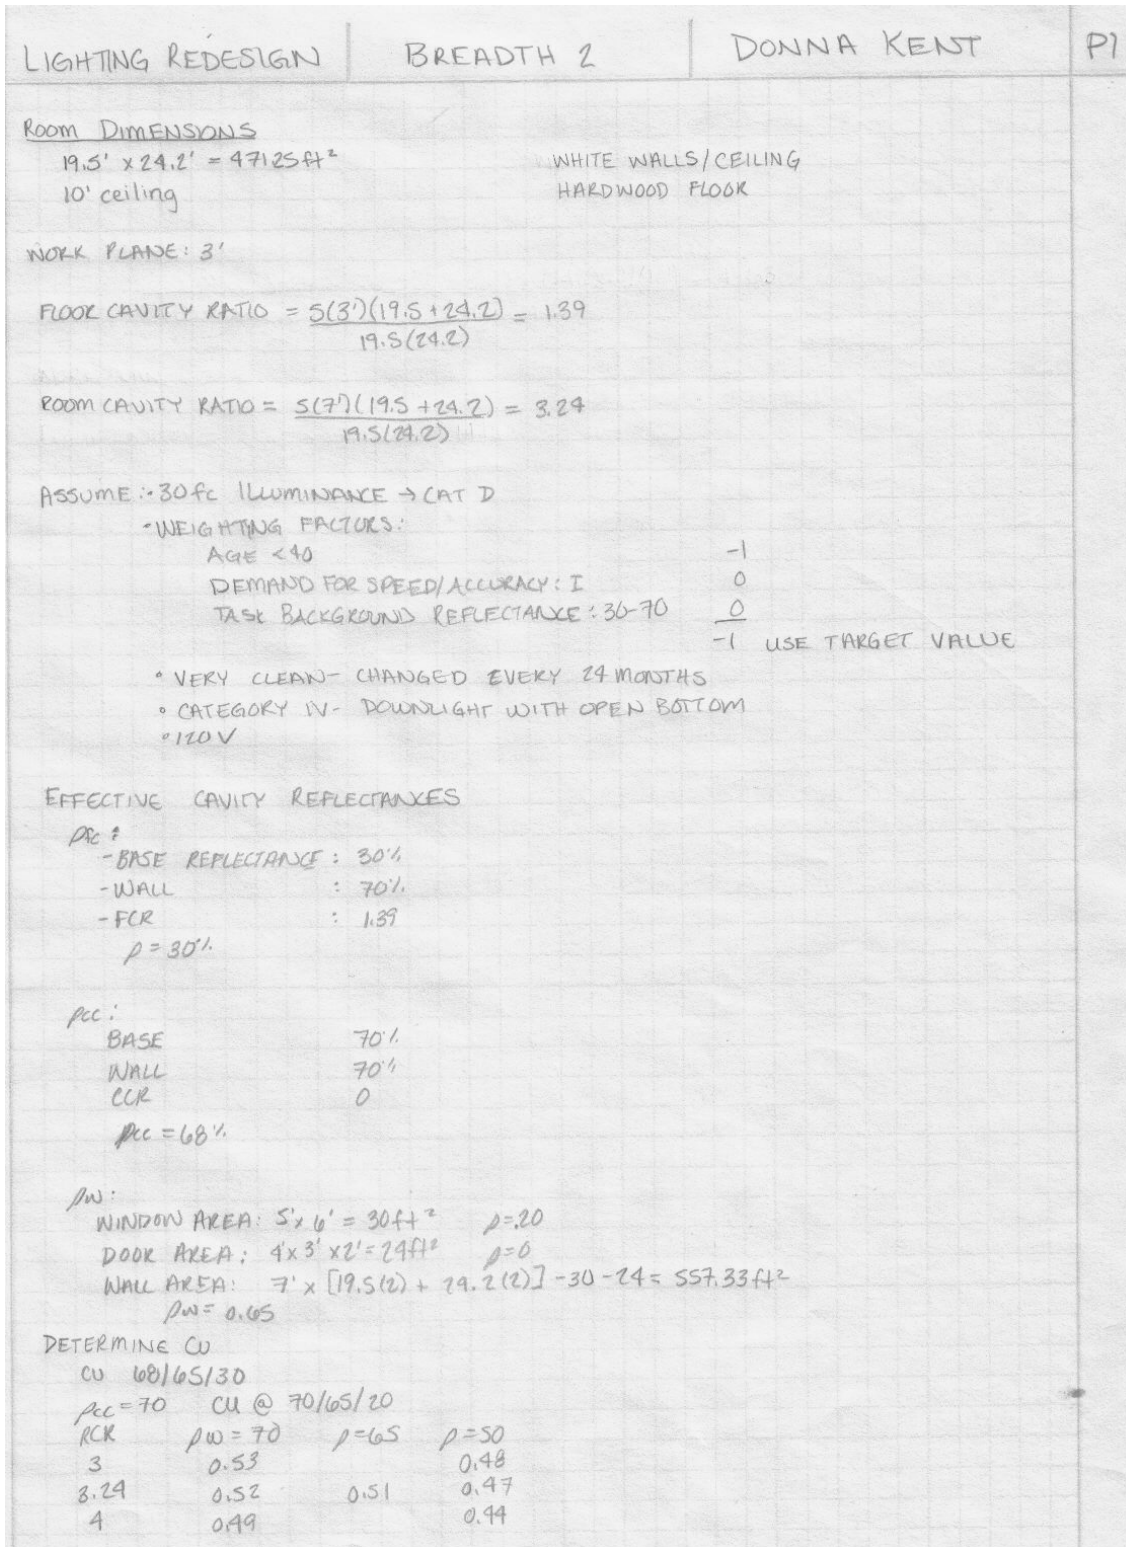 LIGHTING REDESIGN BREADTH 2 DONNA KENT P1
ROOM DIMENSIONS
19.5' x 24.2' = 47125ft² WHITE WALLS/CEILING
10' ceiling HARDWOOD FLOOR
WORK PLANE: 3'
FLOOR CAVITY RATIO = 5(3')(19.5+24.2) = 1.39
19.5(24.2)
ROOM CAVITY RATIO = 5(7')(19.5+24.2) = 3.24
19.5(24.2)
ASSUME: • 30 fc ILLUMINANCE → CAT D
- WEIGHTING FACTORS:
AGE <40 -1
DEMAND FOR SPEED/ACCURACY: I 0
TASK BACKGROUND REFLECTANCE: 30-70 0
-1 USE TARGET VALUE
• VERY CLEAN - CHANGED EVERY 24 MONTHS
• CATEGORY IV - DOWNLIGHT WITH OPEN BOTTOM
• 120V
EFFECTIVE CAVITY REFLECTANCES
ρfc:
- BASE REFLECTANCE: 30%
- WALL : 70%
- FCR : 1.39
ρ = 30%
ρcc:
BASE 70%
WALL 70%
CCR 0
ρcc = 68%
ρw:
WINDOW AREA: 5' x 6' = 30ft² ρ=.20
DOOR AREA: 4' x 3' x 2' = 24ft² ρ=0
WALL AREA: 7' x [19.5(2) + 24.2(2)] -30 -24 = 557.33ft²
ρw = 0.65
DETERMINE CU
CU 68/65/30
ρcc = 70 CU @ 70/65/20
RCR ρw = 70 ρ=65 ρ=50
3 0.53 0.48
3.24 0.52 0.51 0.47
4 0.49 0.44